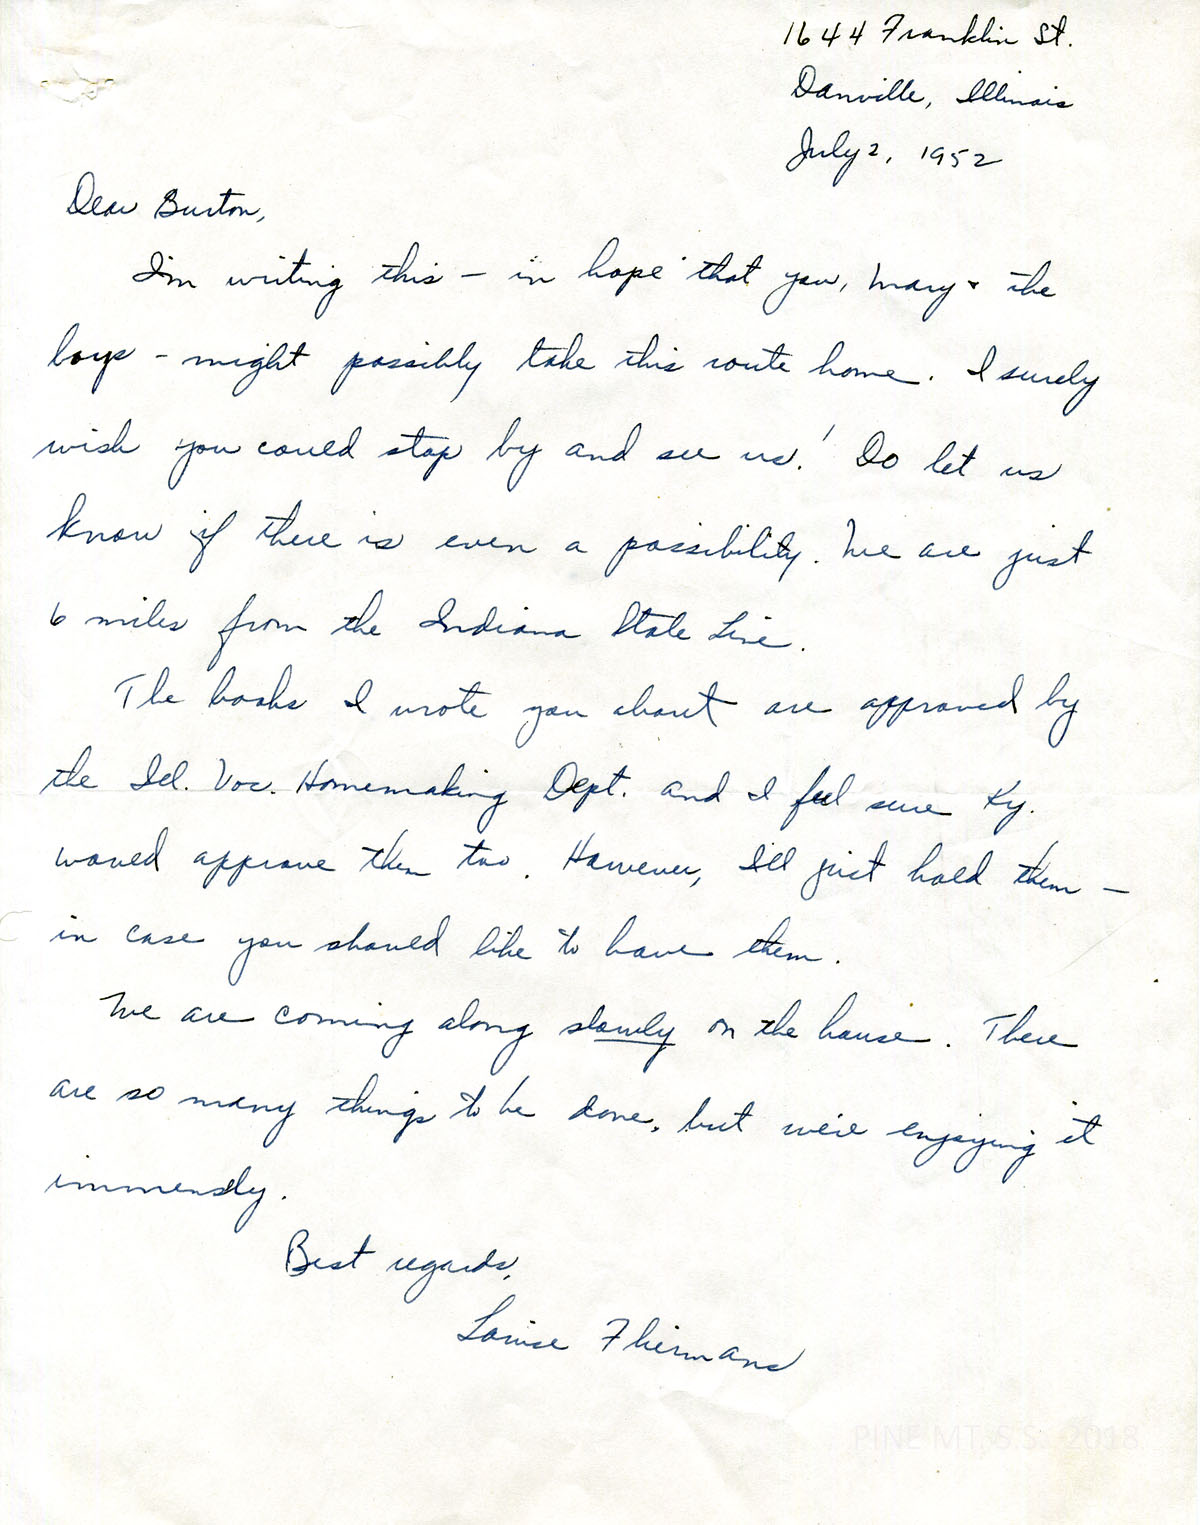 1644 Franklin St.
Danville, Illinois
July 2, 1952
Dear Burton,
I'm writing this – in hope that you, Mary & the
boys – might possibly take this route home. I surely
wish you could stop by and see us! Do let us
know if there is even a possibility. We are just
6 miles from the Indiana State Line.
The books I wrote you about are approved by
the Ill. Voc. Homemaking Dept. and I feel sure Ky.
would approve them too. However, I'll just hold them –
in case you should like to have them.
We are coming along slowly on the house. There
are so many things to be done, but we're enjoying it
immensly.
Best regards,
Louise Fliermans
PINE MT. S.S. 2018